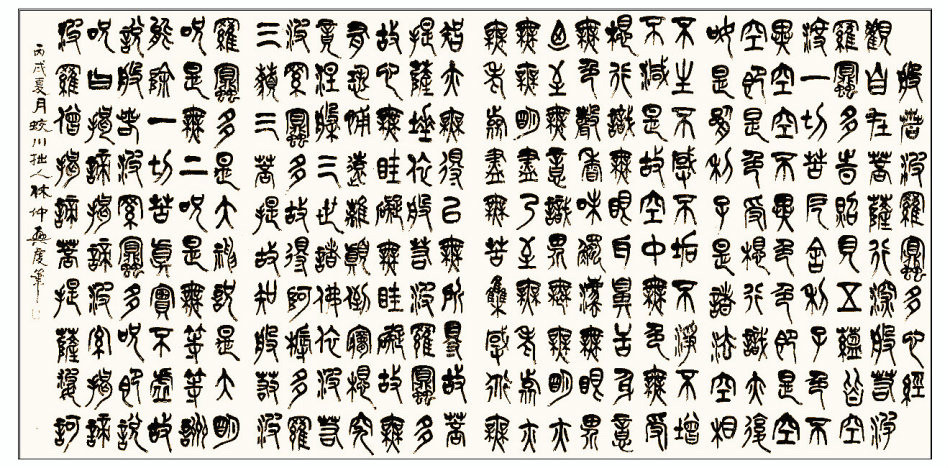 般若波羅蜜多心經
觀自在菩薩行深般若波
羅蜜多時照見五蘊皆空
渡一切苦厄舍利子色不
異空空不異色色即是空
空即是色受想行識亦復
如是舍利子是諸法空相
不生不滅不垢不淨不增
不減是故空中無色無受
想行識無眼耳鼻舌身意
無色聲香味觸法無眼界
乃至無意識界無無明亦
無無明盡乃至無老死亦
無老死盡無苦集滅道無
智亦無得以無所得故菩
提薩埵依般若波羅蜜多
故心無罣礙無罣礙故無
有恐怖遠離顛倒夢想究
竟涅槃三世諸佛依般若
波羅蜜多故得阿耨多羅
三藐三菩提故知般若波
羅蜜多是大神呪是大明
呪是無上呪是無等等呪
能除一切苦真實不虛故
說般若波羅蜜多呪即說
呪曰揭諦揭諦波羅揭諦
波羅僧揭諦菩提薩婆訶
丙戌夏月蛟川拙人林仲興